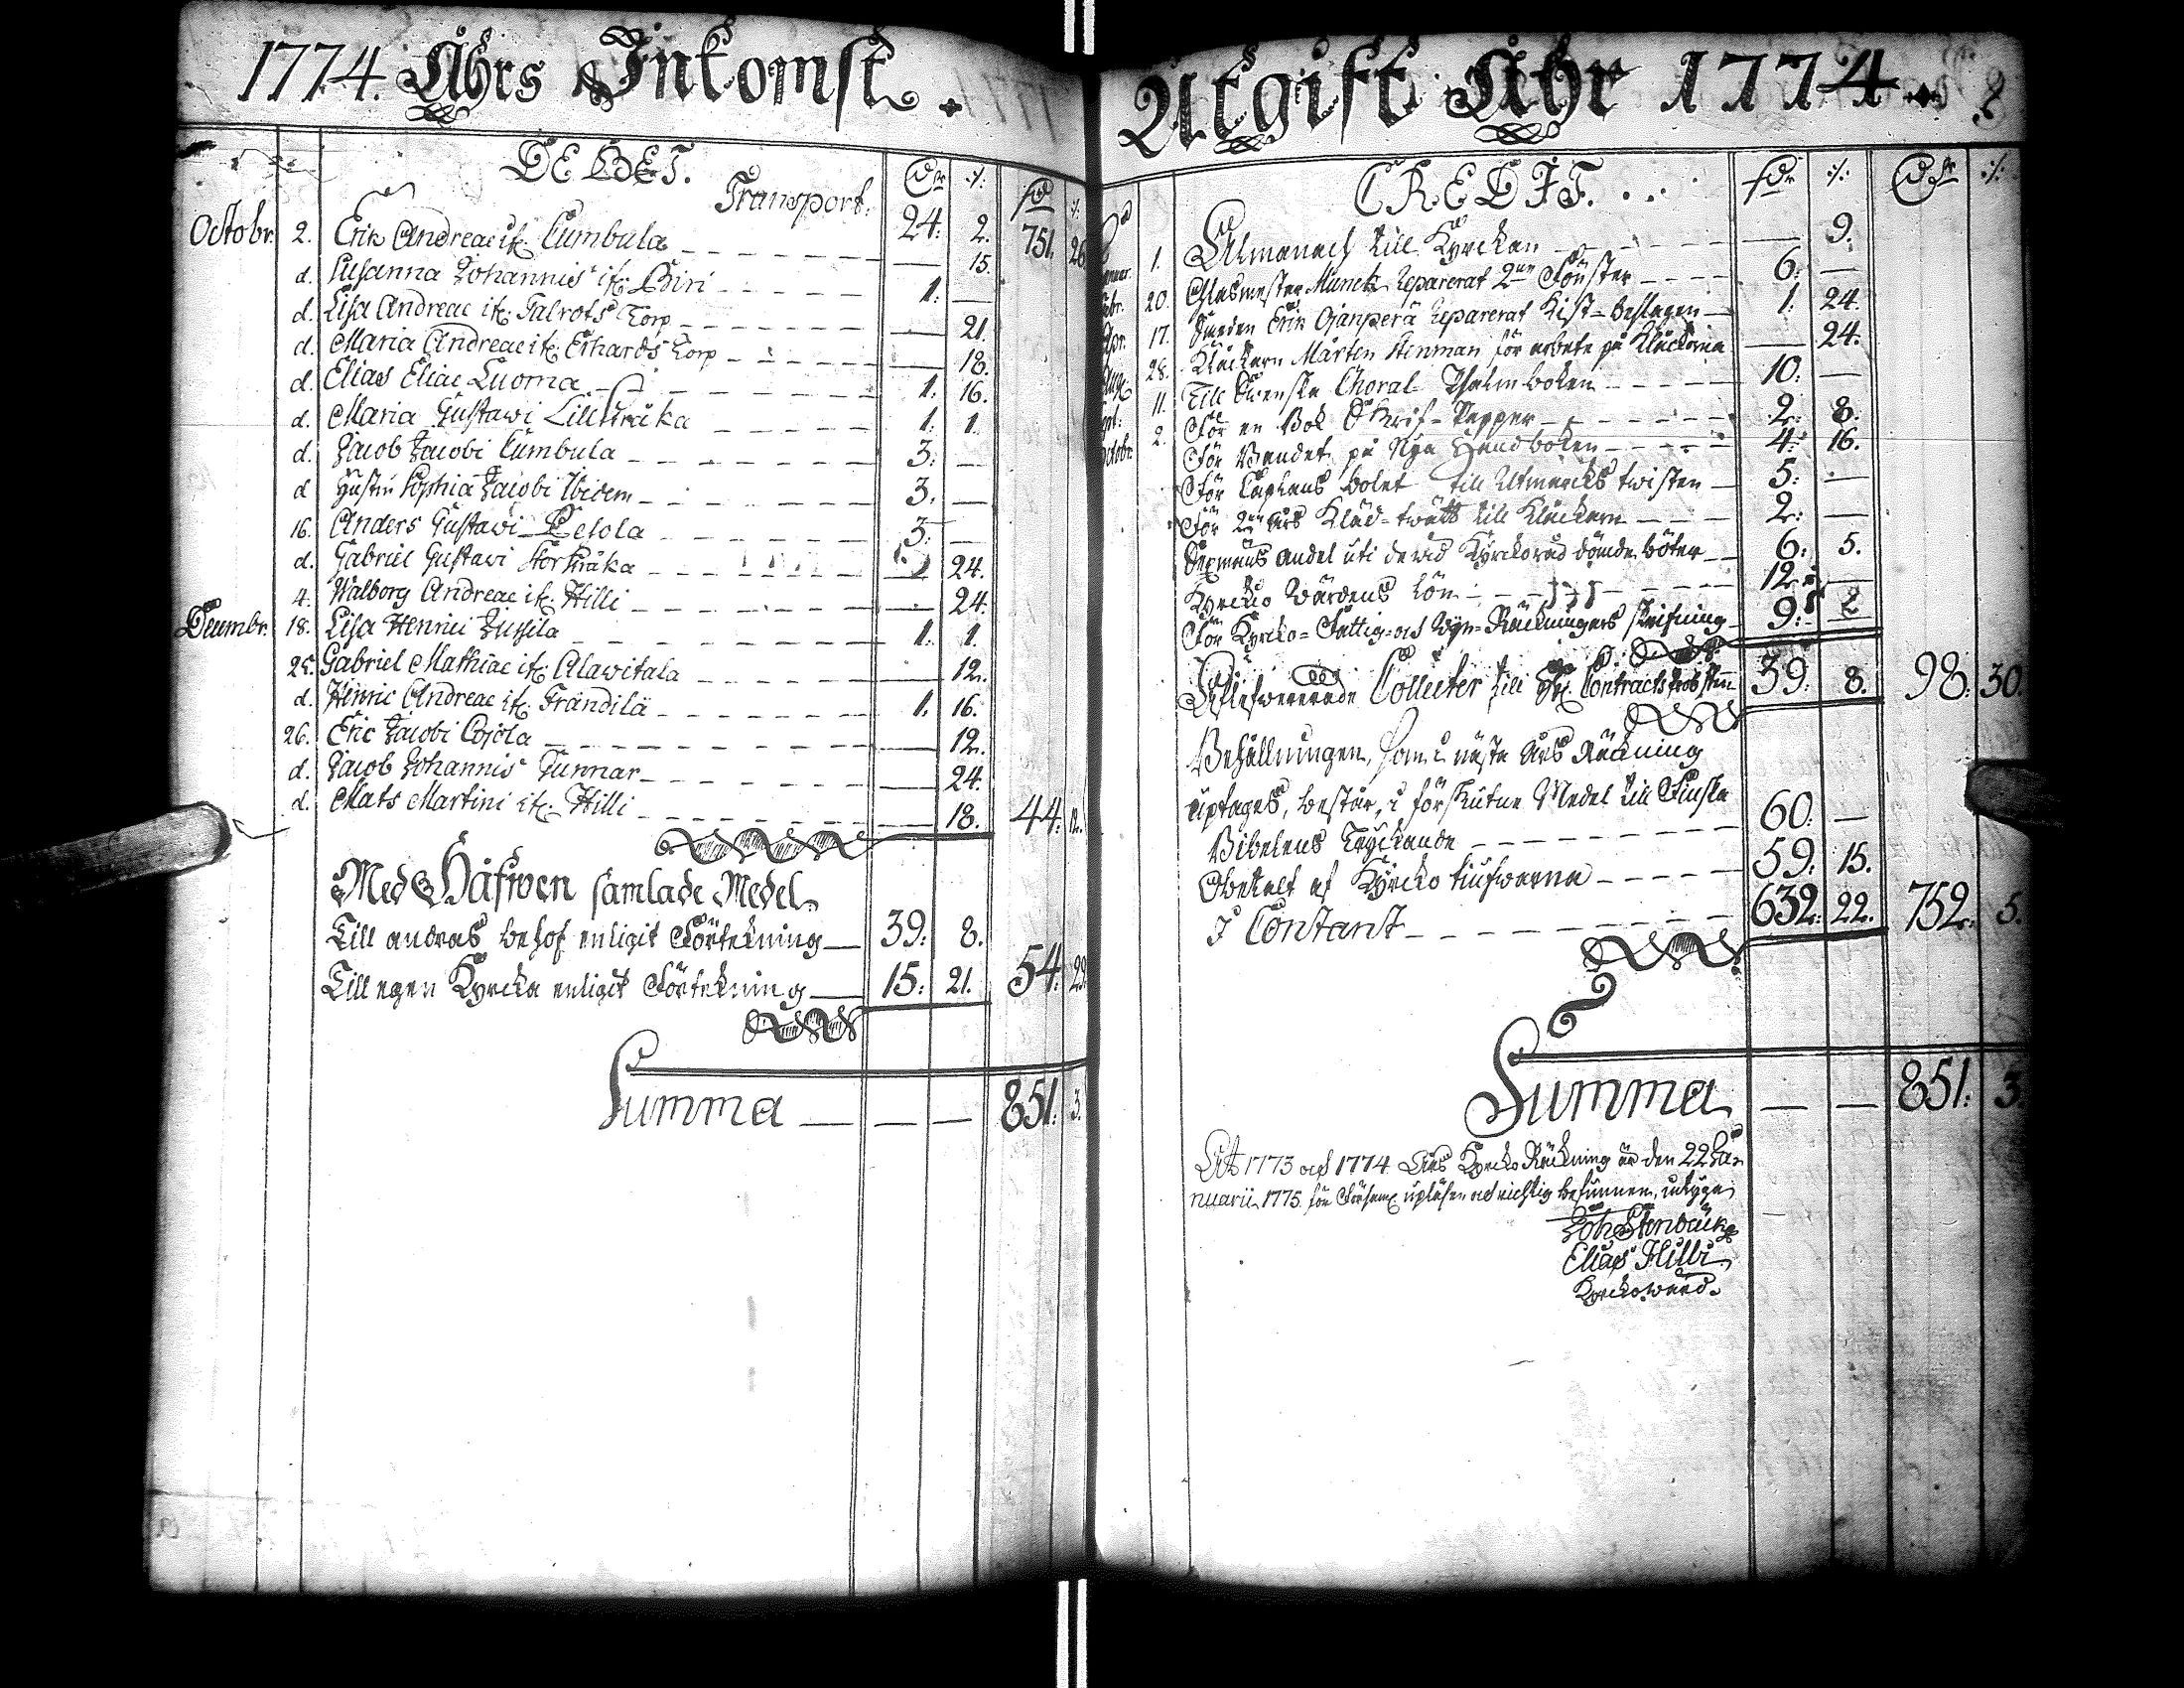 1774. Åhrs Inkomst.
DEBET. Dr ./.
Transport. 24: 2. 751. 26
Octobr. 2. Erik Andreae it. Cumbula — 15.
d. Susanna Johannis it. Biri 1. —
d. Lisa Andreae it. Talrots Torp — 21.
d. Maria Andreae it. Erhards Torp — 18.
d. Elias Eliae Luoma 1. 16.
d. Maria Gustawi Lillkråka 1. 1.
d. Jacob Jacobi Cumbula 3: —
d. Hustru Sophia Jacobi Ibidem 3. —
16. Anders Gustawi Pesola 3. —
d. Gabriel Gustavi Storkråka — 24.
4. Walborg Andreae it. Hilli — 24.
Decembr. 18. Lisa Henrici Jussila 1. 1.
25. Gabriel Mathiae it. Alawitala — 12.
d. Hinric Andreae it. Frändilä 1. 16.
26. Eric Jacobi Ojola — 12.
d. Jacob Johannis Gunnar — 24.
d. Mats Martini it. Hilli — 18. 44. 12.
Med Håfwen samlade Medel.
Till andras behof enligit Förtekning 39: 8.
Till egen Kyrcka enligit Förtekning 15: 21. 54. 29.
Summa — — — 851. 3.
Utgift Åhr 1774.
CREDIT. Dr ./. Dr ./.
1. Almanach till Kyrckan — 9.
20. Glasmester Munck Reparerat 2ne Fönster 6: —
17. Smeden Erik Ojanperä Reparerat Kist-Beslagen 1. 24.
28. Klåckarn Mårten Stenman för arbete på Klåckorna — 24.
11. Till Swenska Choral Psalmboken 10: —
2. För en Bok Skrif-Papper 2: 8.
För Bandet på Nya Handboken 4: 16.
För Caplans bolet till Utmarcks twisten 5: —
För 2ne års Kläd-twätt till Klåckarn 2: —
Sexmans andel uti de wid Kyrckoråd dömde böter 6: 5.
Kyrcko Wärdens Lön 12: —
För Kyrcko-Fattig- och Wyn-Räckningars skrifning 9: —
Lefwererade Collecter till H. Contracts Probsten 39: 8. 98: 30.
Behållningen, som i nästa Års Räckning
uptages, består, i förskutne Medel till Finska
Bibelens Tryckande 60: —
Obetalt af Kyrcko tiufwarna 59: 15.
I Contant 632: 22. 752: 5.
Summa — — 851: 3.
At 1773 och 1774 Års Kyrcko Räckning är den 22 Ja-
nuarii 1775 för Församl. upläsen och richtig befunnen, intyga
Joh Stenbäck
Elias Hilli
Kyrckowärd.